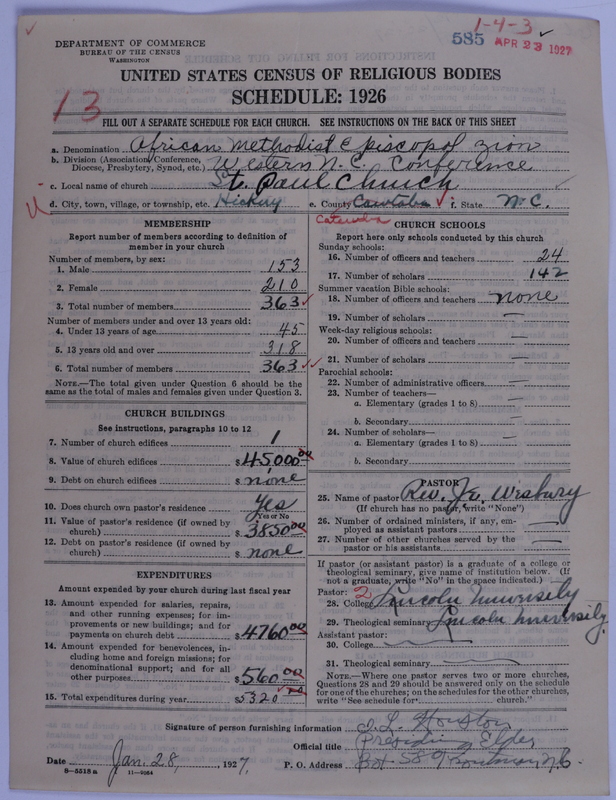 1-4-3
585 APR 23 1927
DEPARTMENT OF COMMERCE
BUREAU OF THE CENSUS
WASHINGTON
UNITED STATES CENSUS OF RELIGIOUS BODIES
SCHEDULE: 1926
13
FILL OUT A SEPARATE SCHEDULE FOR EACH CHURCH. SEE INSTRUCTIONS ON THE BACK OF THIS SHEET
a. Denomination African Methodist Episcopal Zion
b. Division (Association, Conference, Diocese, Presbytery, Synod, etc.) Western N.C. Conference
c. Local name of church St. Paul Church
d. City, town, village, or township, etc. Hickory e. County Cawtaba f. State N.C.
Catawba
MEMBERSHIP
Report number of members according to definition of
member in your church
Number of members, by sex:
1. Male 153
2. Female 210
3. Total number of members 363
Number of members under and over 13 years old:
4. Under 13 years of age 45
5. 13 years old and over 318
6. Total number of members 363
NOTE.—The total given under Question 6 should be the
same as the total of males and females given under Question 3.
CHURCH BUILDINGS
See instructions, paragraphs 10 to 12
7. Number of church edifices 1
8. Value of church edifices $ 45000 00
9. Debt on church edifices $ none
10. Does church own pastor's residence yes
Yes or No
11. Value of pastor's residence (if owned by
church) $ 3850 00
12. Debt on pastor's residence (if owned by
church) $ none
EXPENDITURES
Amount expended by your church during last fiscal year
13. Amount expended for salaries, repairs,
and other running expenses; for im-
provements or new buildings; and for
payments on church debt $ 4760 00
14. Amount expended for benevolences, in-
cluding home and foreign missions; for
denominational support; and for all
other purposes $ 560 00
15. Total expenditures during year $ 5320 00
CHURCH SCHOOLS
Report here only schools conducted by this church
Sunday schools:
16. Number of officers and teachers 24
17. Number of scholars 142
Summer vacation Bible schools:
18. Number of officers and teachers none
19. Number of scholars —
Week-day religious schools:
20. Number of officers and teachers —
21. Number of scholars —
Parochial schools:
22. Number of administrative officers —
23. Number of teachers—
a. Elementary (grades 1 to 8) —
b. Secondary —
24. Number of scholars—
a. Elementary (grades 1 to 8) —
b. Secondary —
PASTOR
25. Name of pastor Rev. J.E. Wesbury
(If church has no pastor, write "None")
26. Number of ordained ministers, if any, em-
ployed as assistant pastors —
27. Number of other churches served by the
pastor or his assistants —
If pastor (or assistant pastor) is a graduate of a college or
theological seminary, give name of institution below. (If
not a graduate, write "No" in the space indicated.)
Pastor: 2
28. College Lincoln University
29. Theological seminary Lincoln University
Assistant pastor:
30. College
31. Theological seminary
NOTE.—Where one pastor serves two or more churches,
Questions 28 and 29 should be answered only on the schedule
for one of the churches; on the schedules for the other churches,
write "See schedule for church."
Signature of person furnishing information S. L. Houston
Official title Presiding Elder
Date Jan. 28, 1927. P. O. Address Box 389 N.C.
8-5518 a 11-9064